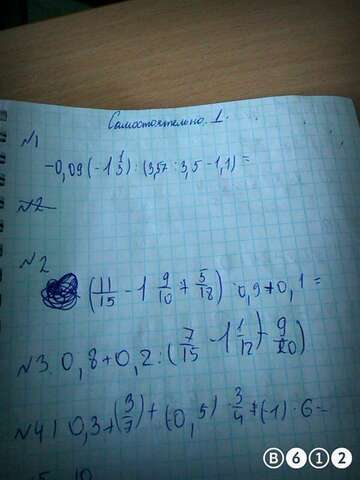 Самостоятельно. 1.
№1
-0,09 (-1 1/3) : (3,57 : 3,5 - 1,1) =
№2
№2
(11/15 - 1 9/10 + 5/18) : 0,9 + 0,1 =
№3. 0,8 + 0,2 : (7/15 - 1 1/12) + 9/20)
№4) 0,3 + (3/7) + (0,5) · 3/4 + (-1) · 6 =
B612